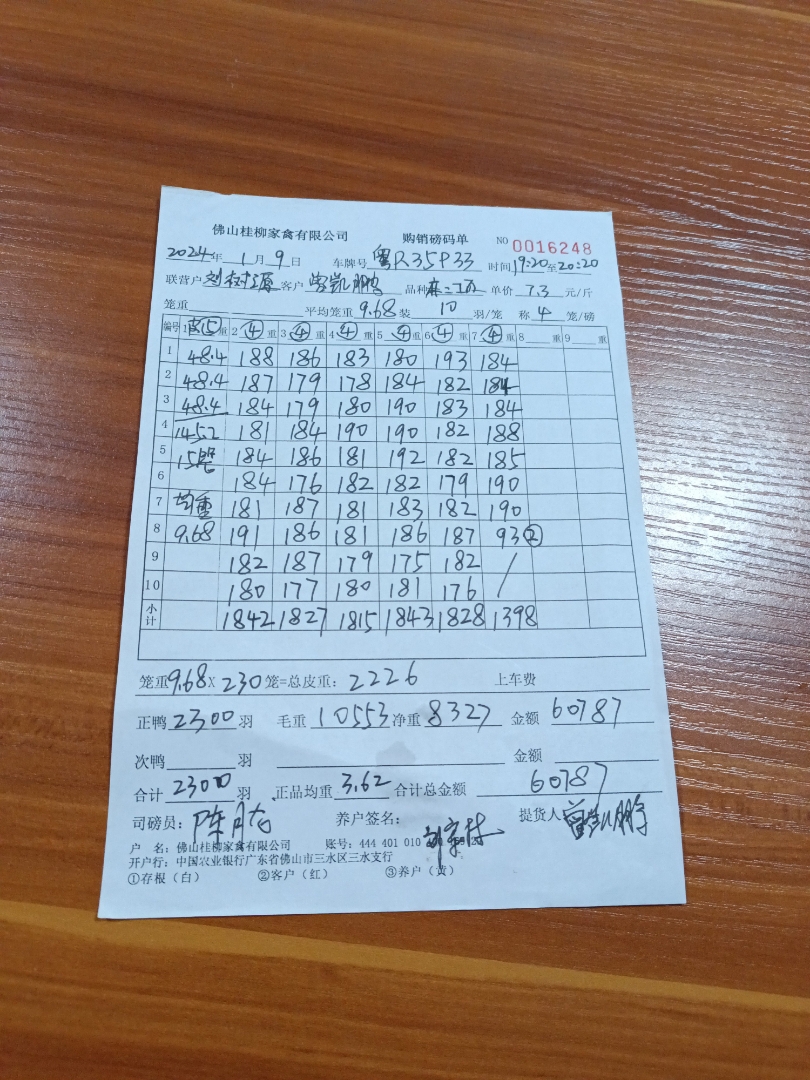 佛山桂柳家禽有限公司 购销磅码单 NO 0016248
2024年 1月 9日 车牌号 粤R35P33 时间 19:20至20:20
联营户 刘树源 客户 曾凯鹏 品种 单价 7.3 元/斤
笼重 平均笼重 9.68 装 10 羽/笼 称 4 笼/磅
编号 1 皮⑤ 重 2 ④ 重 3 ④ 重 4 ④ 重 5 ④ 重 6 ④ 重 7 ④ 重 8 重 9 重
1 48.4 188 186 183 180 193 184
2 48.4 187 179 178 184 182 184
3 48.4 184 179 180 190 183 184
4 145.2 181 184 190 190 182 188
5 15笼 184 186 181 192 182 185
6 184 176 182 182 179 190
7 均重 181 187 181 183 182 190
8 9.68 191 186 181 186 187 93②
9 182 187 179 175 182 /
10 180 177 180 181 176
小计 1842 1827 1815 1843 1828 1398
笼重 9.68 X 230 笼=总皮重: 2226 上车费
正鸭 2300 羽 毛重 10553 净重 8327 金额 60787
次鸭 羽 金额
合计 2300 羽 正品均重 3.62 合计总金额 60787
司磅员: 养户签名: 提货人 曾凯鹏
户 名: 佛山桂柳家禽有限公司 账号: 444 401 010
开户行: 中国农业银行广东省佛山市三水区三水支行
①存根(白) ②客户(红) ③养户(黄)